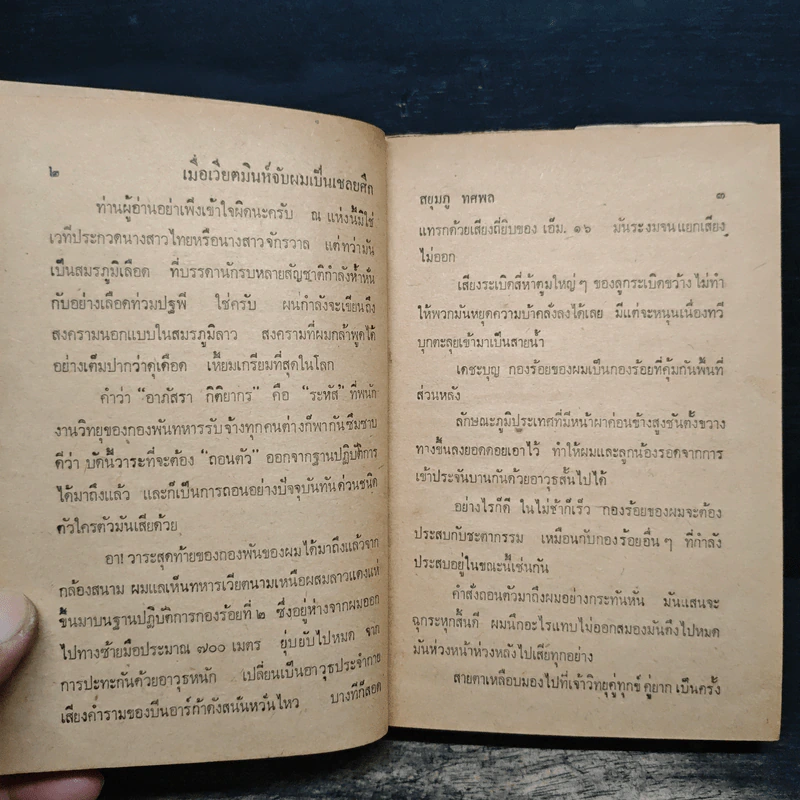 ๒ เมื่อเวียตมินห์จับผมเป็นเชลยศึก
ท่านผู้อ่านอย่าเพิ่งเข้าใจผิดนะครับ ณ แห่งนี้มิใช่
เวทีประกวดนางสาวไทยหรือนางสาวจักรวาล แต่ทว่ามัน
เป็นสมรภูมิเลือด ที่บรรดานักรบหลายสัญชาติกำลังห้ำหั่น
กับอย่างเลือดท่วมปฐพี ใช่ครับ ผมกำลังจะเขียนถึง
สงครามนอกแบบในสมรภูมิลาว สงครามที่ผมกล้าพูดได้
อย่างเต็มปากว่าดุเดือด เหี้ยมเกรียมที่สุดในโลก
คำว่า “อาภัสรา กิติยากร” คือ “ระหัส” ที่พนัก
งานวิทยุของกองพันทหารรับจ้างทุกคนต่างก็พากันซึมซาบ
ดีว่า บัดนี้วาระที่จะต้อง “ถอนตัว” ออกจากฐานปฏิบัติการ
ได้มาถึงแล้ว และก็เป็นการถอนอย่างปัจจุบันทันด่วนชนิด
ตัวใครตัวมันเสียด้วย
อา! วาระสุดท้ายของกองพันของผมได้มาถึงแล้วจาก
กล้องสนาม ผมแลเห็นทหารเวียตนามเหนือผสมลาวแดงแห่
ขึ้นมาบนฐานปฏิบัติการกองร้อยที่ ๒ ซึ่งอยู่ห่างจากผมออก
ไปทางซ้ายมือประมาณ ๗๐๐ เมตร ยุ่บยับไปหมด จาก
การปะทะกันด้วยอาวุธหนัก เปลี่ยนเป็นอาวุธประจำกาย
เสียงคำรามของปืนอาร์ก้าดังสนั่นหวั่นไหว บางทีก็สอด
สยุมภู ทศพล ๓
แทรกด้วยเสียงถี่ยิบของ เอ็ม. ๑๖ มันระงมจนแยกเสียง
ไม่ออก
เสียงระเบิดสี่ห้าตูมใหญ่ๆ ของลูกระเบิดขว้าง ไม่ทำ
ให้พวกมันหยุดความบ้าคลั่งลงได้เลย มีแต่จะหนุนเนื่องทวี
บุกตะลุยเข้ามาเป็นสายน้ำ
เดชะบุญ กองร้อยของผมเป็นกองร้อยที่คุ้มกันพื้นที่
ส่วนหลัง
ลักษณะภูมิประเทศที่มีหน้าผาค่อนข้างสูงชันตั้งขวาง
ทางขึ้นลงยอดดอยเอาไว้ ทำให้ผมและลูกน้องรอดจากการ
เข้าประจันบานกันด้วยอาวุธสั้นไปได้
อย่างไรก็ดี ในไม่ช้าก็เร็ว กองร้อยของผมจะต้อง
ประสบกับชะตากรรม เหมือนกับกองร้อยอื่นๆ ที่กำลัง
ประสบอยู่ในขณะนี้เช่นกัน
คำสั่งถอนตัวมาถึงผมอย่างกระทันหัน มันแสนจะ
ฉุกระหุกสิ้นดี ผมนึกอะไรแทบไม่ออกสมองมันตึงไปหมด
มันห่วงหน้าห่วงหลังไปเสียทุกอย่าง
สายตาเหลือบมองไปที่เจ้าวิทยุคู่ทุกข์ คู่ยาก เป็นครั้ง